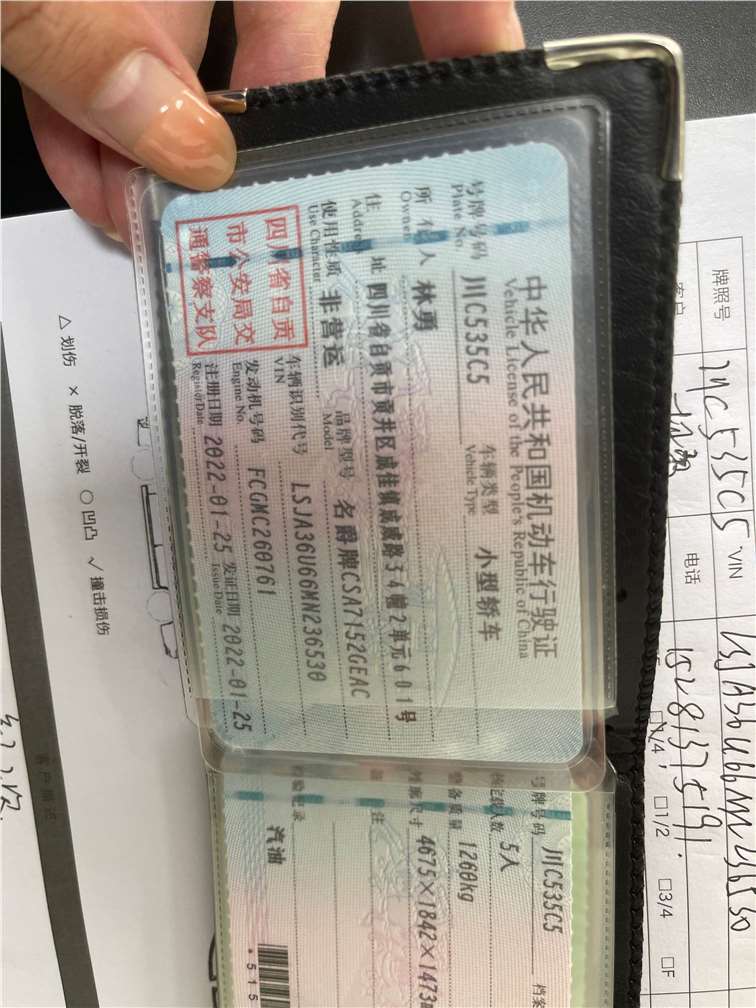 中华人民共和国机动车行驶证
Vehicle License of the People's Republic of China
号牌号码 川C535C5 车辆类型 小型轿车
Plate No. Vehicle Type
所有人 林勇
Owner
住址 四川省自贡市贡井区成佳镇成威路34幢2单元601号
Address
使用性质 非营运 品牌型号 名爵牌CSA7152GEAC
Use Character Model
四川省自贡
市公安局交
通警察支队
车辆识别代号 LSJA36U66MN236530
VIN
发动机号码 FCGMC260761
Engine No.
注册日期 2022-01-25 发证日期 2022-01-25
Register Date Issue Date
号牌号码 川C535C5 档案
核定载人数 5人
整备质量 1260kg
外廓尺寸 4675×1842×1473
注
检验记录
汽油
*515
牌照号 川C535C5 VIN LSJA36U66MN236530
客户 电话 15281375191
1/4 □1/2 □3/4 □F
△ 划伤 × 脱落/开裂 ○ 凹凸 √ 撞击损伤